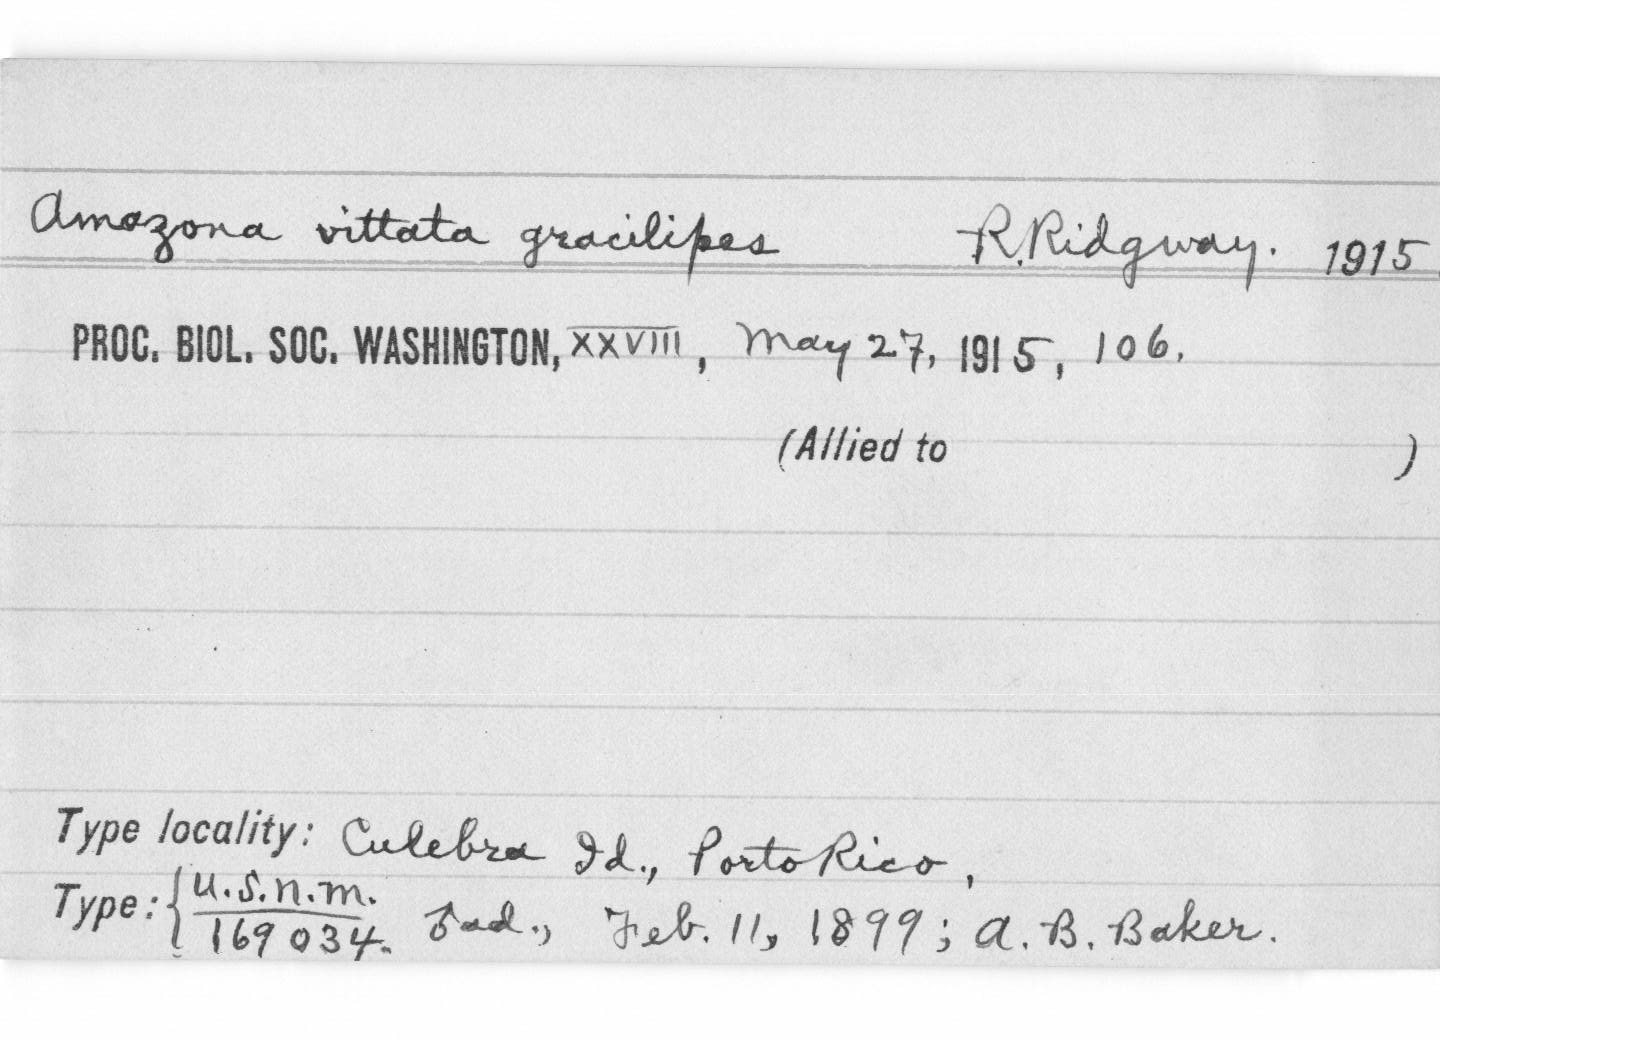 Amazona vittata gracilipes R. Ridgway. 1915
PROC. BIOL. SOC. WASHINGTON, XXVIII, May 27, 1915, 106.
(Allied to )
Type locality: Culebra Id., Porto Rico,
Type: { U.S.N.M. 169034. ♂ad., Feb. 11, 1899; A. B. Baker.